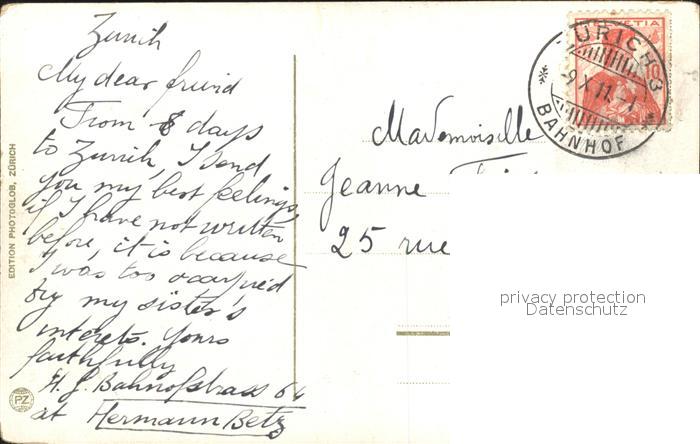 Zurich
My dear friend
From 8 days
to Zurich, I send
you my best feelings,
if I have not written
before, it is because
I was too occupied
by my sister's
interets. Yours
faithfully
H. J. Bahnofstrass 64
at Hermann Betz
EDITION PHOTOGLOB, ZÜRICH
PZ
HELVETIA
10
ZÜRICH 3
-9.X.11.-1
BAHNHOF
Mademoiselle
Jeanne
25 rue
privacy protection
Datenschutz